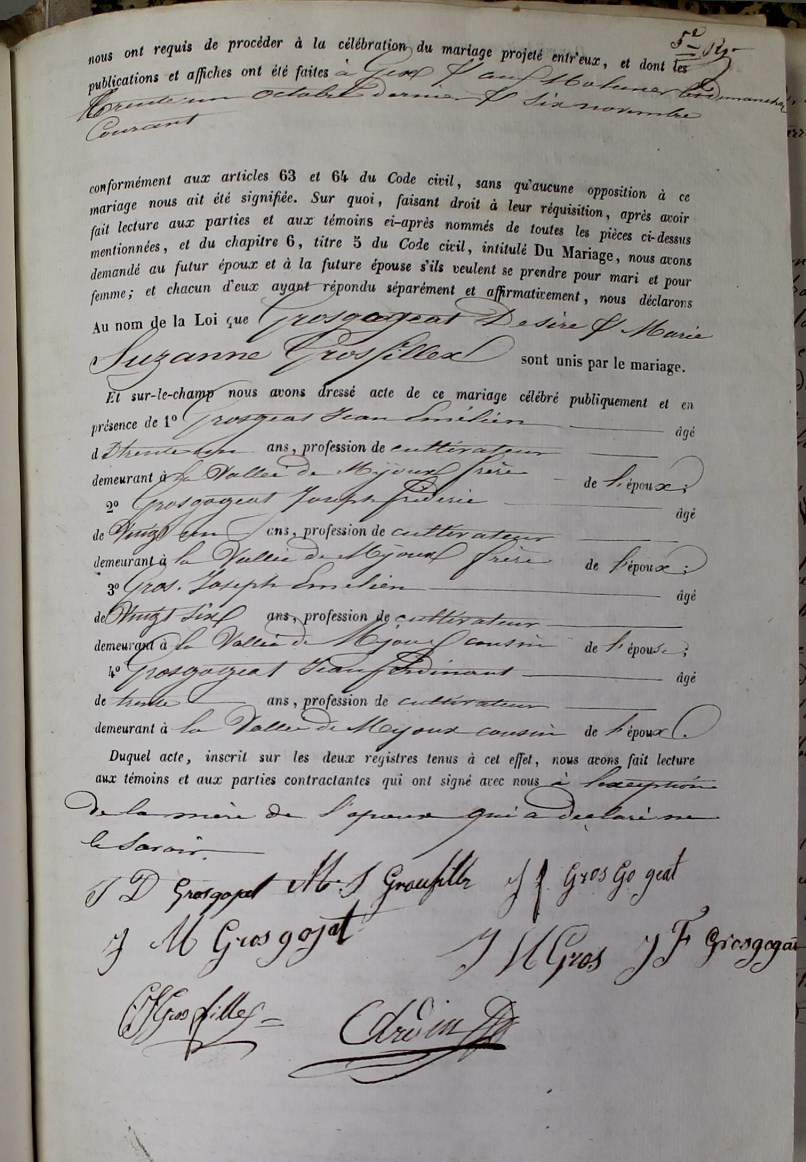 nous ont requis de procéder à la célébration du mariage projeté entr'eux, et dont les
publications et affiches ont été faites à Gex & aux Molunes les dimanches
trente un octobre dernier & six novembre
Courant
conformément aux articles 63 et 64 du Code civil, sans qu'aucune opposition à ce
mariage nous ait été signifiée. Sur quoi, faisant droit à leur réquisition, après avoir
fait lecture aux parties et aux témoins ci-après nommés de toutes les pièces ci-dessus
mentionnées, et du chapitre 6, titre 5 du Code civil, intitulé Du Mariage, nous avons
demandé au futur époux et à la future épouse s'ils veulent se prendre pour mari et pour
femme; et chacun d'eux ayant répondu séparément et affirmativement, nous déclarons
Au nom de la Loi que Grosgogeat Desiré & Marie
Suzanne Grosfillex sont unis par le mariage.
Et sur-le-champ nous avons dressé acte de ce mariage célébré publiquement et en
présence de 1º Grosgeat Jean Emélien âgé
de trente un ans, profession de cultivateur
demeurant à la Vallée de Mijoux frère de l'époux;
2º Grosgogeat Joseph frédéric âgé
de Vingt un ans, profession de cultivateur
demeurant à la Vallée de Mijoux frère de l'époux;
3º Gros. Joseph Emélien âgé
de Vingt six ans, profession de cultivateur
demeurant à la Vallée de Mijoux cousin de l'épouse;
4º Grosgogeat Jean ferdinant âgé
de trente ans, profession de cultivateur
demeurant à la Vallée de Mijoux cousin de l'époux.
Duquel acte, inscrit sur les deux registres tenus à cet effet, nous avons fait lecture
aux témoins et aux parties contractantes qui ont signé avec nous à l'exception
de la mère de l'époux qui a déclaré ne
le savoir.
J D Grosgogeat M. S Grosfillex J f GrosGogeat
J M Grosgojat J H Gros J F Grosgogeat
Grosfillex